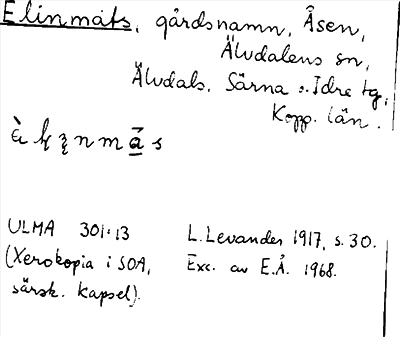 Elinmats, gårdsnamn, Åsen,
Älvdalens sn,
Älvdals, Särna o. Idre tg,
Kopp. län.
ULMA 301:13
(Xerokopia i SOA,
särsk. kapsel).
L. Levander 1917, s. 30.
Exc. av E.Å. 1968.